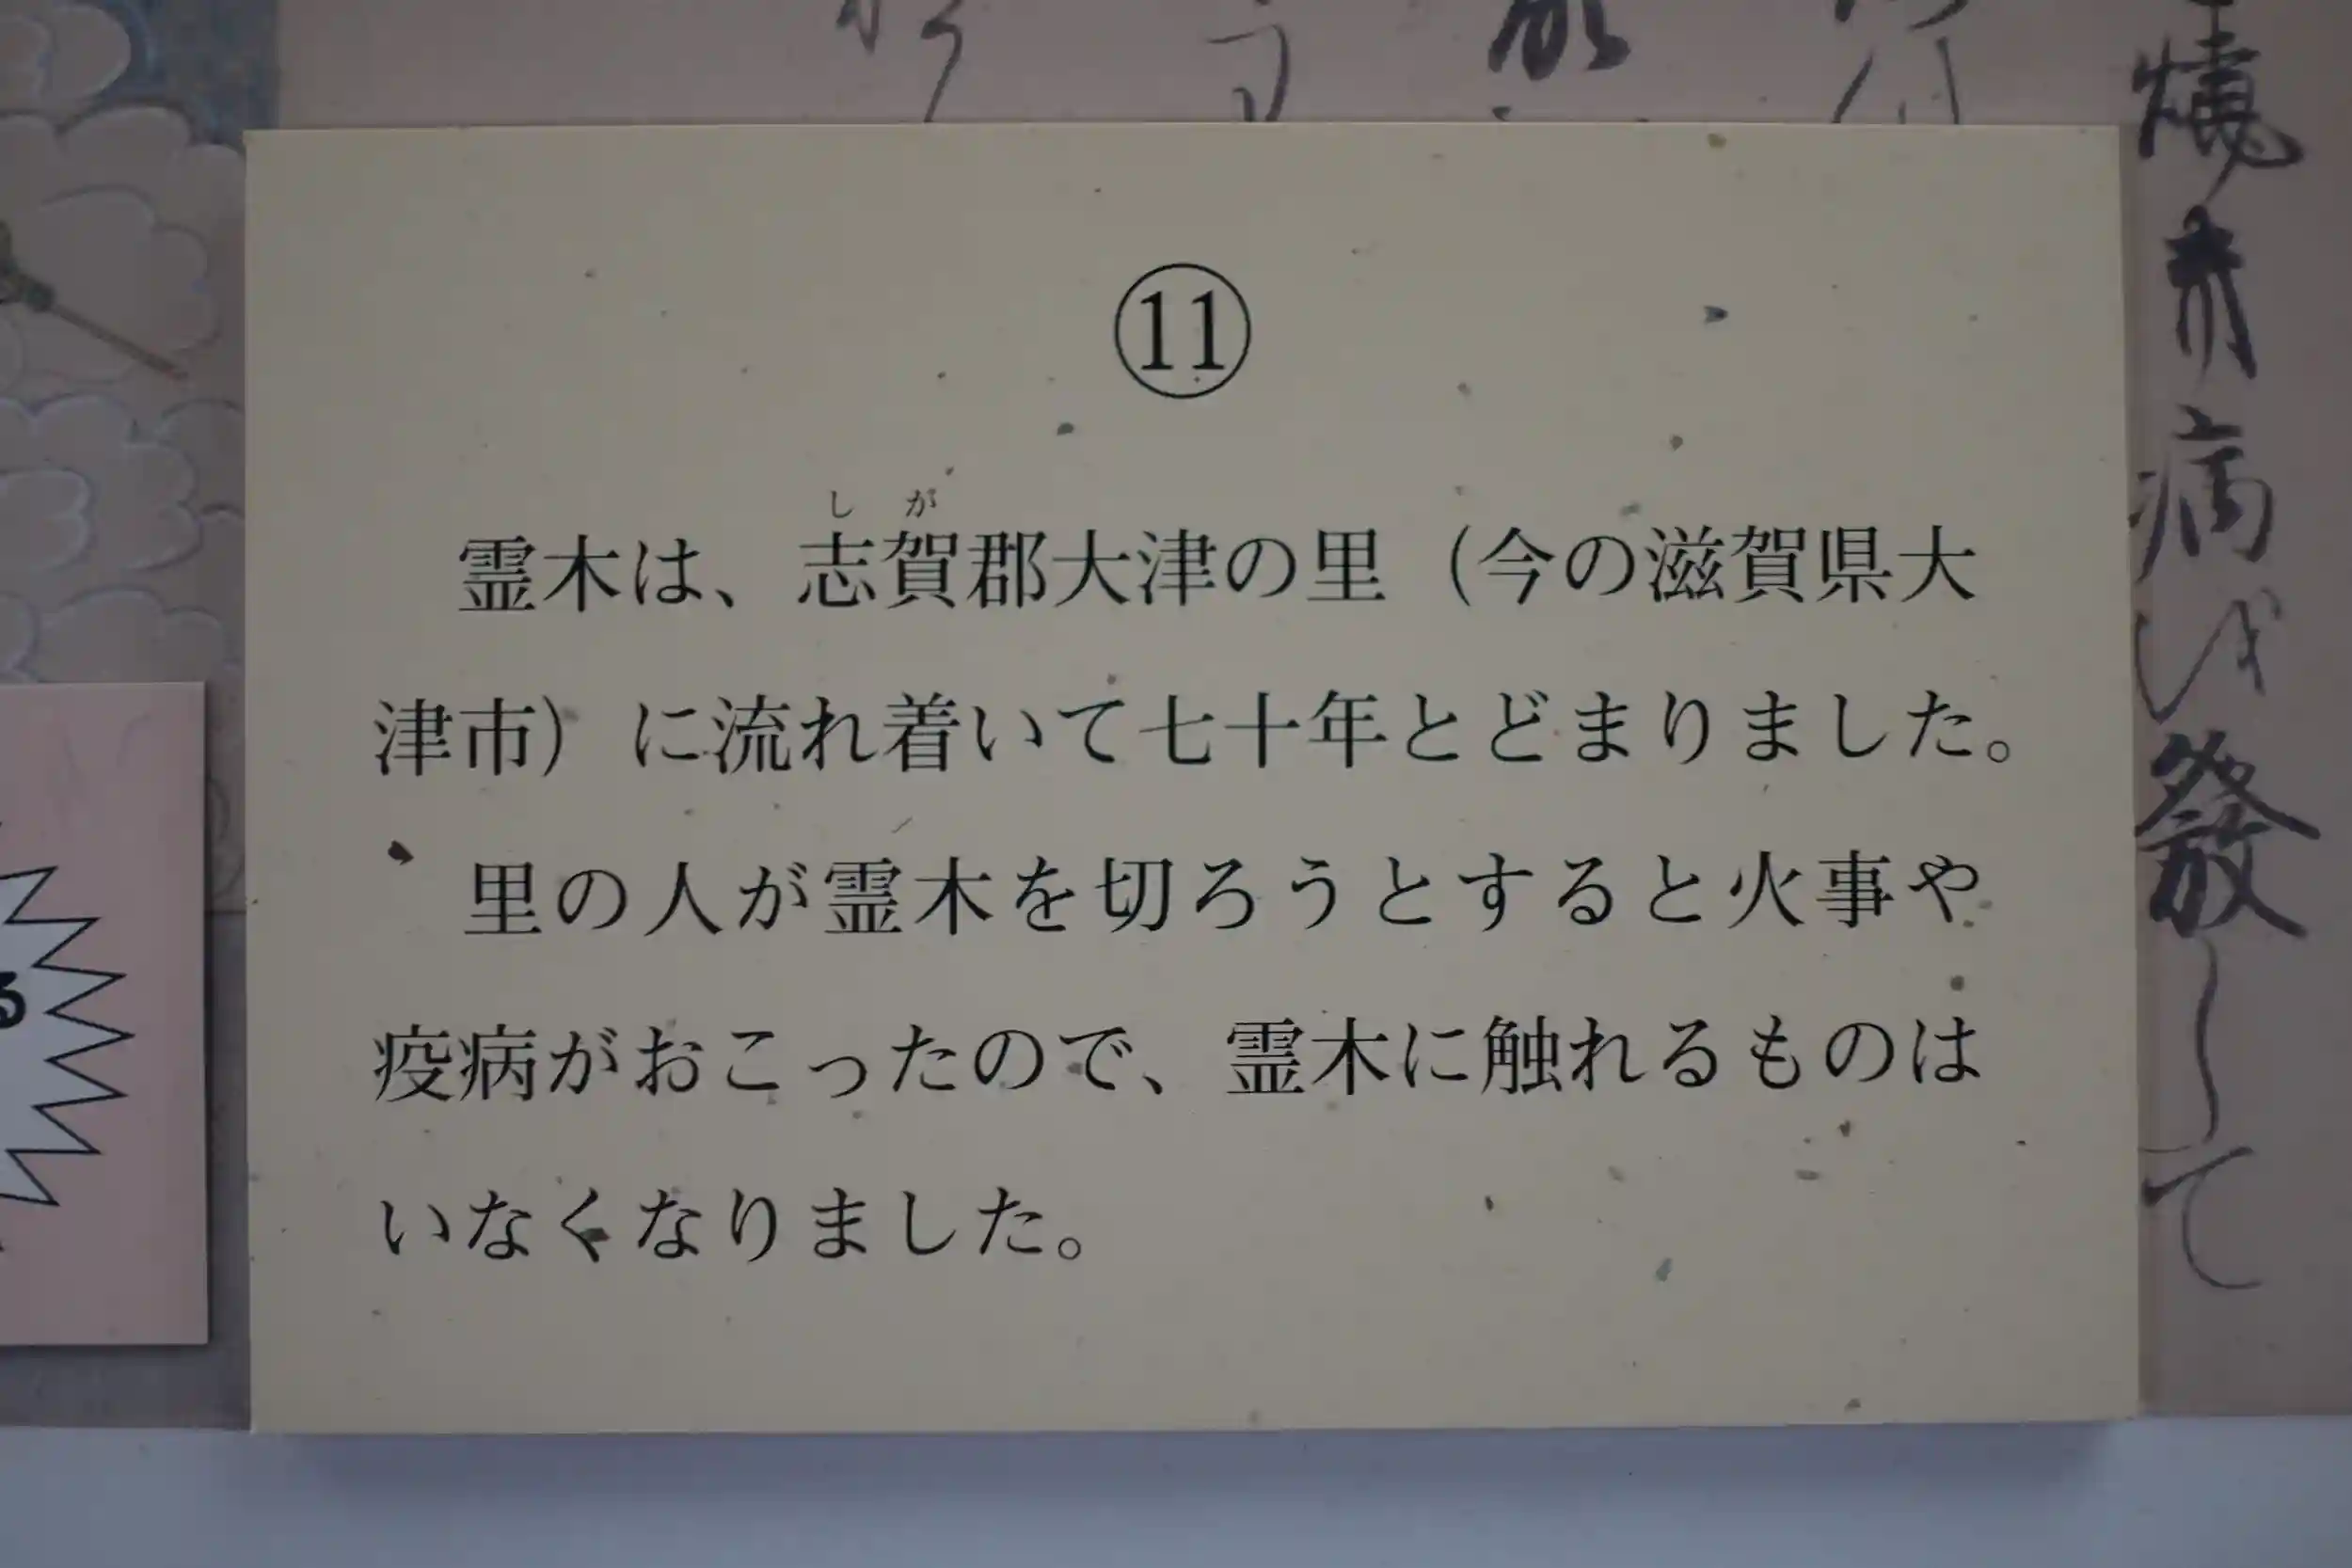 ⑪
霊木は、志賀郡大津の里（今の滋賀県大
津市）に流れ着いて七十年とどまりました。
里の人が霊木を切ろうとすると火事や
疫病がおこったので、霊木に触れるものは
いなくなりました。
しが
病
発して
る